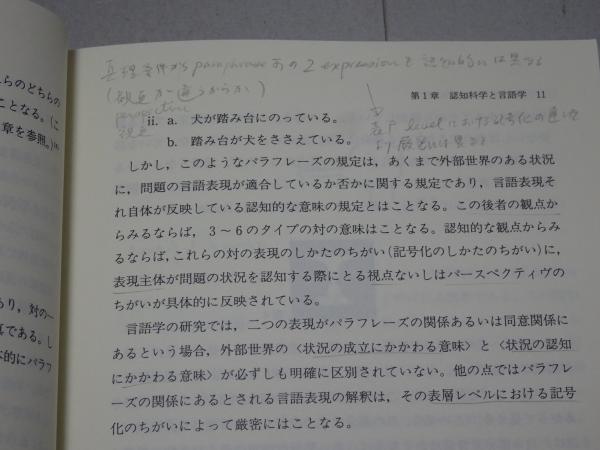 真理条件から paraphrase の 2 expression も 認知的には異なる
(視点が違うからか)
perspective
視点
第1章 認知科学と言語学 11
ii. a. 犬が踏み台にのっている。
b. 踏み台が犬をささえている。
しかし，このようなパラフレーズの規定は，あくまで外部世界のある状況
に，問題の言語表現が適合しているか否かに関する規定であり，言語表現そ
れ自体が反映している認知的な意味の規定とはことなる。この後者の観点か
らみるならば，3～6のタイプの対の意味はことなる。認知的な観点からみ
るならば，これらの対の表現のしかたのちがい(記号化のしかたのちがい)に，
表現主体が問題の状況を認知する際にとる視点ないしはパースペクティヴの
ちがいが具体的に反映されている。
言語学の研究では，二つの表現がパラフレーズの関係あるいは同意関係に
あるという場合，外部世界の〈状況の成立にかかわる意味〉と〈状況の認知
にかかわる意味〉が必ずしも明確に区別されていない。他の点ではパラフレ
ーズの関係にあるとされる言語表現の解釈は，その表層レベルにおける記号
化のちがいによって厳密にはことなる。
らのどちらの
ことなる。(こ
章を参照。)
あり，対の一
真である。し
本的にパラフ